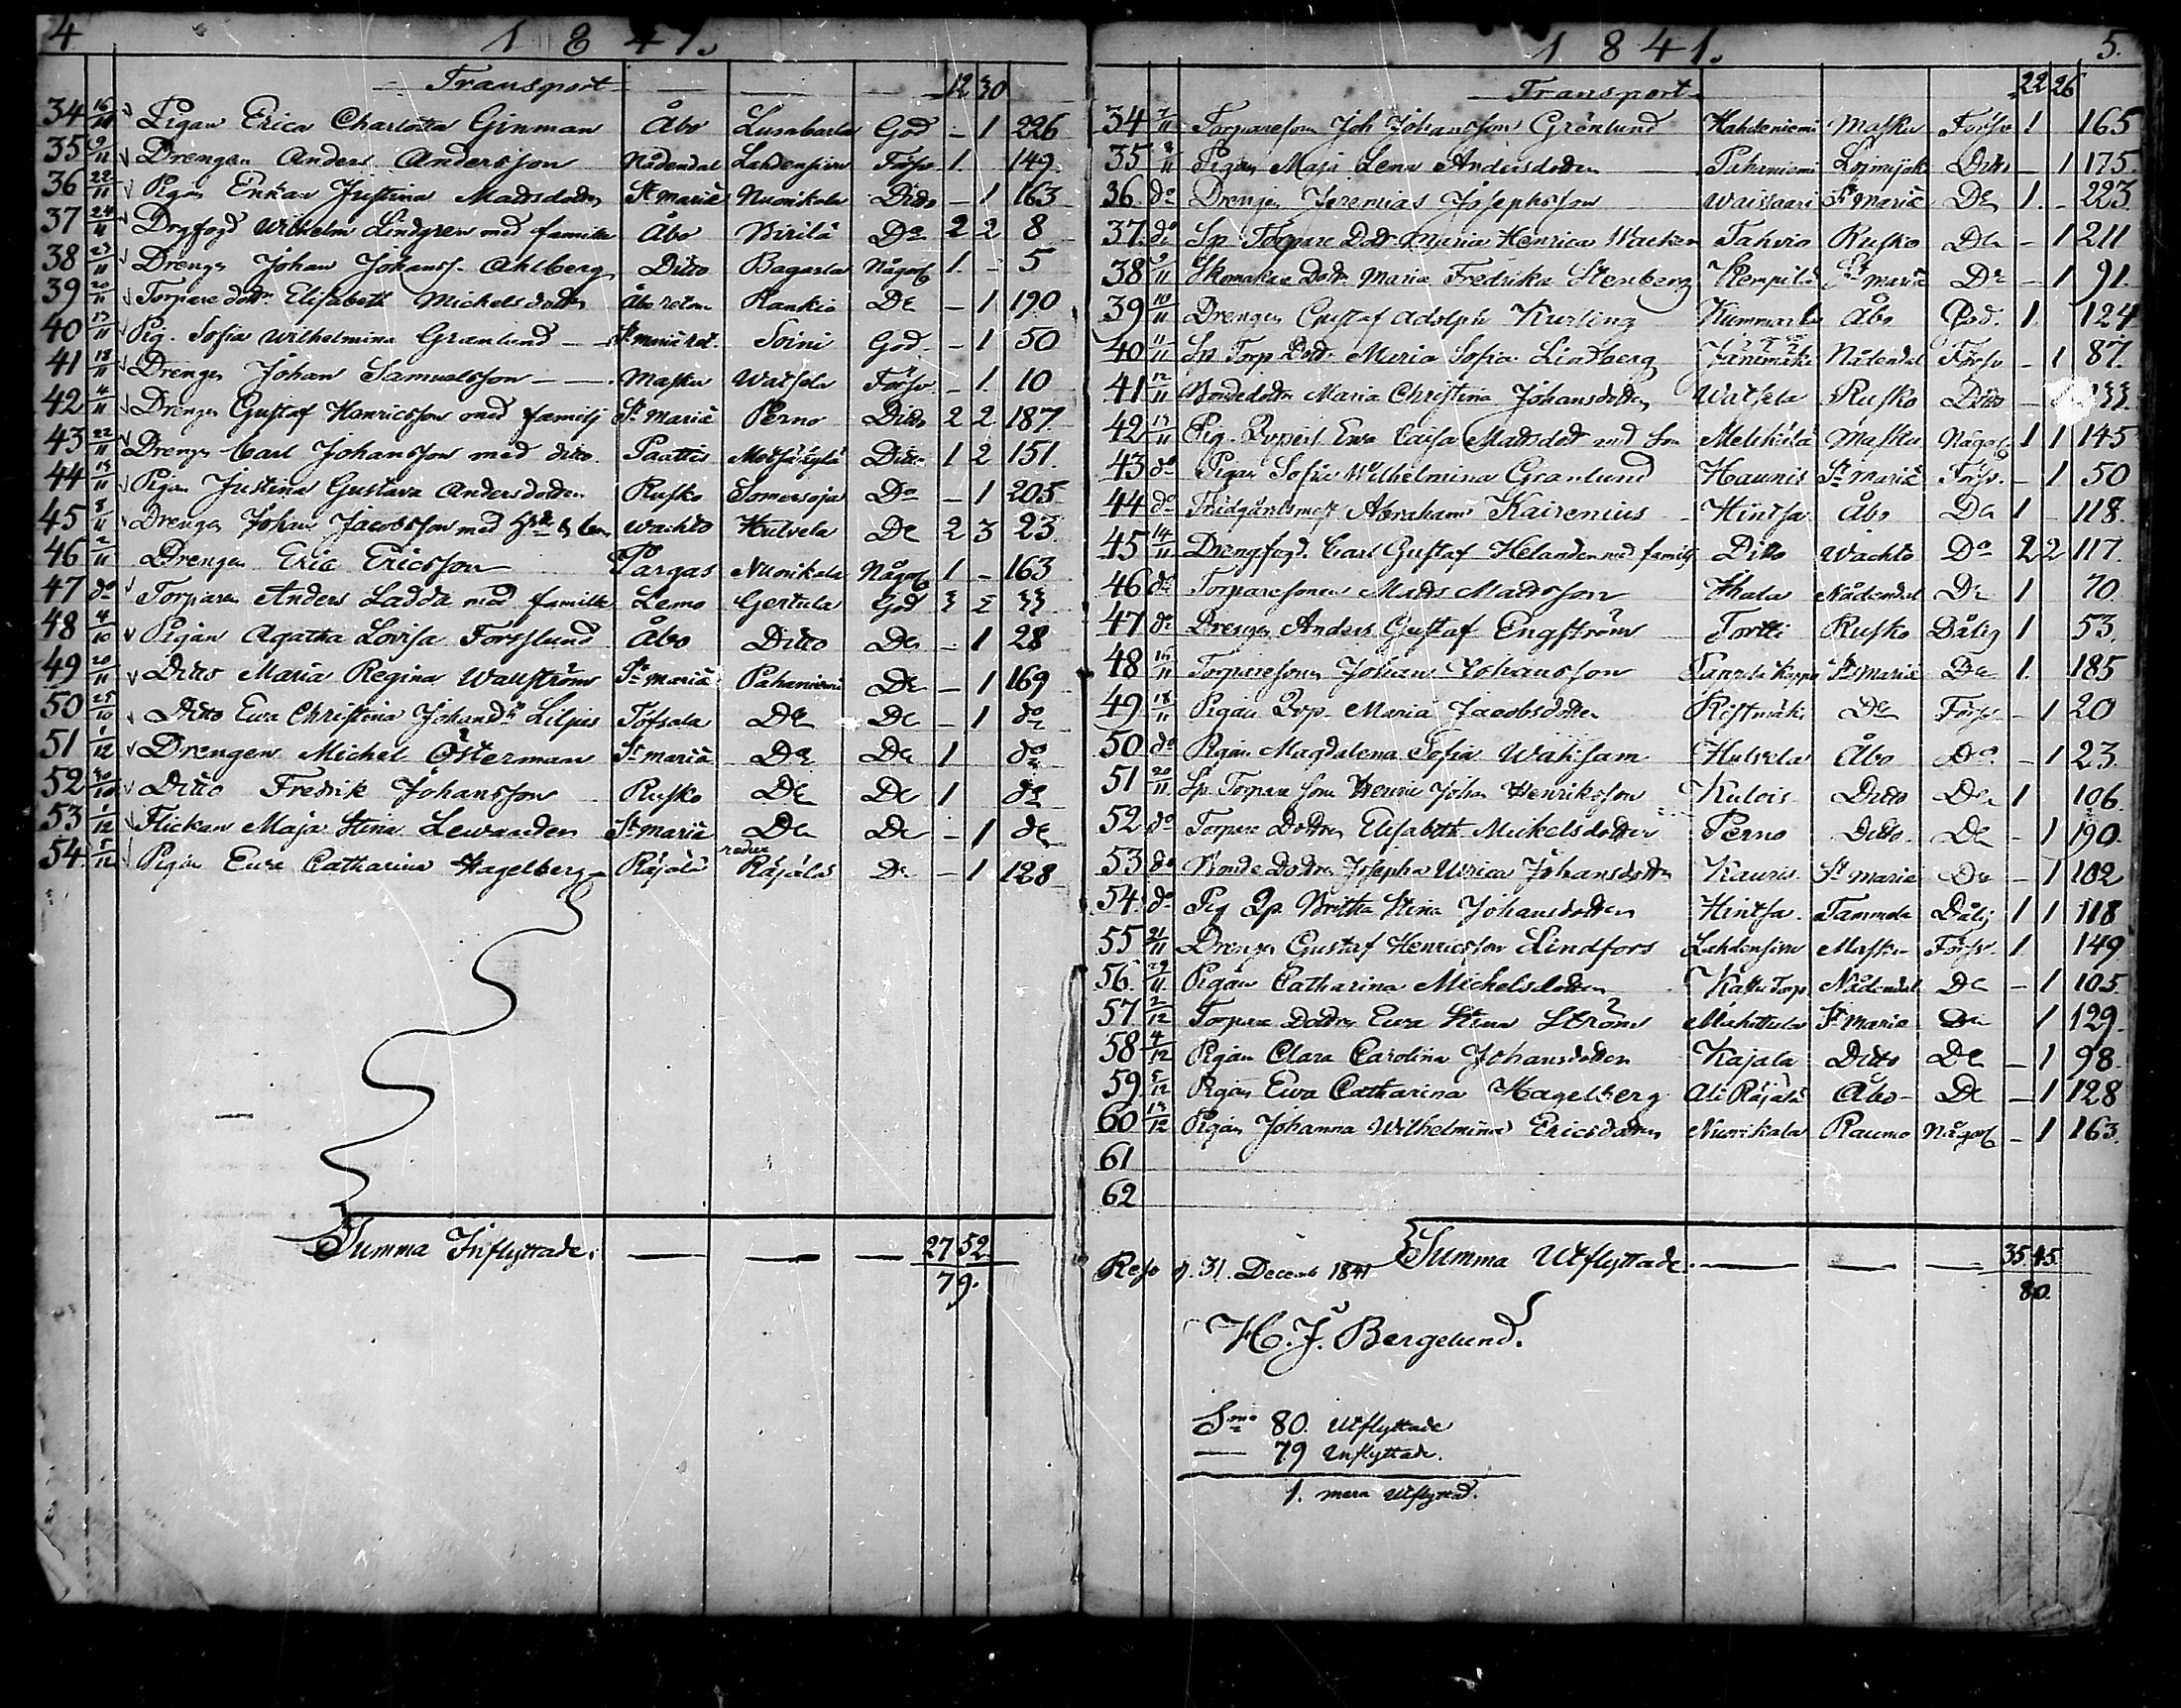 4
1841.
Transport — — — 12 30
34 16/11 Pigan Erica Charlotta Ginman Åbo God - 1 226
35 9/11 Drengen Anders Andersson Nådendal Lahdensivu Försv 1 149
36 22/11 Pigan Enkan Justina Mattsdotter St Mariæ Nuorikala Ditto - 1 163
37 24/11 Drgfogd Wilhelm Lindgren med famille Åbo Virilä Do 2 2 8
38 23/11 Drengen Johan Johanss. Ahlberg Ditto Bagarla Någorl 1 - 5
39 20/11 Torpare dottr Elisabeth Michelsdotter Åbo retour Kankis Do - 1 190
40 13/11 Pig. Sofia Wilhelmina Granlund — St Mariæ ret. Soini God - 1 50
41 18/11 Drengen Johan Samuelsson — — Masku Watsela Försv. - 1 10
42 4/11 Drengen Gustaf Henricsson med familj St Mariæ Perno Ditto 2 2 187
43 22/11 Drengen Carl Johansson med ditto Paattis Metsäkylä Ditto 1 2 151
44 13/11 Pigan Justina Gustava Andersdotter Rusko Somersoja Do - 1 205
45 8/11 Drengen Johan Jacobsson med Wachto Hulvela Do 2 3 23
46 2/11 Drengen Eric Ericsson Pargas Nuorikala Någorl 1 - 163
47 do Torparen Anders Ladda med famille Lemo Gertula God 3 2 33
48 4/10 Pigan Agatha Lovisa Forsslund Åbo Ditto Do - 1 28
49 20/11 Ditto Maria Regina Wallström St Mariæ Pahaniemi Do - 1 169
50 25/10 Ditto Ewa Christina Johansdr Liljus Töfsala Do Do - 1 do
51 1/12 Drengen Michel Österman St Mariæ Do Do 1 do
52 30/10 Ditto Fredrik Johansson Rusko Do Do 1 do
53 1/12 Flickan Maja Stina Lewanden St Mariæ Do Do - 1 do
54 5/12 Pigan Ewa Catharina Hagelberg Räjälä Räjälä Do - 1 128
Summa Inflyttade: — — — 27 52
79.
1841.
5.
Transport 22 26
34 7/11 Torparesonen Joh Johansson Grönlund Hahdeniemi Masku Försv 1 165
35 8/11 Pigan Maja Lena Andersdotter Pahaniemi Loimijoki Ditto - 1 175
36 do Drengen Jeremias Josephsson Waissaari St Mariæ Do 1 - 223
37 do Sp. Torpare Dottr Maria Henrica Wacker Tahvio Rusko Do - 1 211
38 9/11 Skomakare Dottr Maria Fredrika Stenberg Kempilä St Mariæ Do - 1 91
39 10/11 Drengen Gustaf Adolph Kurling Åbo God. 1 124
40 11/11 Sp Torp Dottr Maria Sofia Lindberg Jänimäki Nådendal Försv - 1 87
41 12/11 Bondedottr Maria Christina Johansdotter Watsela Rusko Ditto - 33
42 13/11 Pig. Qvpers Ewa Caisa Mattsdotr med Son Mälikkälä Masku Någorl 1 1 145
43 do Pigan Sofia Wilhelmina Granlund Haunis St Mariæ Försv. - 1 50
44 do Trädgårdsmest Abraham Kairenius Hintsa Åbo Do 1 - 118
45 14/11 Drengfogd. Carl Gustaf Helander med familj Ditto Wachto Do 2 2 117
46 do Torparesonen Matts Mattsson Ihala Nådendal Do 1 70
47 do Drengen Anders Gustaf Engström Tortti Rusko Dålig 1 53
48 15/11 Torparesonen Johan Johansson St Mariæ Do 1 185
49 18/11 Pigan Qvp. Maria Jacobsdotter Ristmäki Do Försv - 1 20
50 do Pigan Magdalena Sofia Waksam Hulvela Åbo Do - 1 23
51 20/11 Sp Torpare Son Henric Johan Henriksson Kulois Ditto Do 1 106
52 do Torpare Dottren Elisabeth Mickelsdotter Perno Ditto Do - 1 190
53 do Bonde Dottren Josepha Ulrica Johansdotter Kauris St Mariæ Do - 1 102
54 do Pig Qp. Britta Stina Johansdotter Hintsa Tammela Dålig 1 1 118
55 21/11 Drengen Gustaf Henricsson Lindfors Lahdensivu Masku Försv. 1 149
56 29/11 Pigan Catharina Michelsdotter Kattu Torp Nådendal Do - 1 105
57 2/12 Torpare Dottren Ewa Stina Ström Mähittula St Mariæ Do 1 129
58 4/12 Pigan Clara Carolina Johansdotter Kajala Ditto Do - 1 98
59 5/12 Pigan Ewa Catharina Hagelberg Ali Räjälä Åbo Do - 1 128
60 13/12 Pigan Johanna Wilhelmina Ericsdotter Nuorikala Raumo Någorl - 1 163
61
62
Summa Utflyttade — — — 35 45
80.
Reso d. 31. Decemb 1841
H. J. Bergelund.
Sma 80. Utflyttade
— 79 Inflyttade.
1. mera Utflyttad.